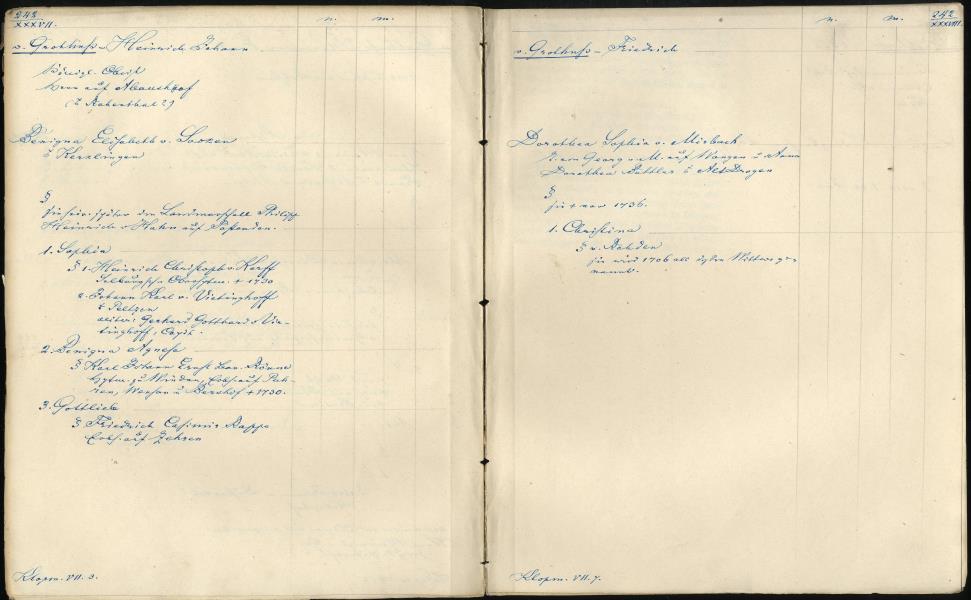 242
XXXVII.
n. m.
v. Grotthuß – Heinrich Johann
Königl. Obrist
Herr auf
(u Rosenthal?)
Benigna Elisabeth v. Saszen
u Kerklingen
§
sie heir. später den Landmarschall Philipp
Heinrich v Hahn auf Postenden.
1. Sophia
§ 1. Heinrich Christoph v. Korff
Selburgsch. + 1730
2. Johann Karl v. Vietinghoff
Gerhard Gotthard v Vie-
tinghoff, Capit.
2. Benigna Agnesa
§ Karl Johann Ernst Bar. Rönne
Hptm. zu Windau, Erbh. auf
Wensau u Bershof + 1730.
3. Gottlieb
§ Friedrich Casimir Rappe
Erbh. auf
Klopm. VII. 3.
n. m.
242
XXXVIII.
v. Grotthuß – Friedrich
Dorothea Sophia v. Misbach
T. von Georg v M. auf Wangen u Anna
Dorothea Buttlar u Alt Drogen
§
sie + vor 1736.
1. Christina
§ v. Rahden
sie wird 1706 als Wittwe ge-
nannt.
Klopm. VII. 7.